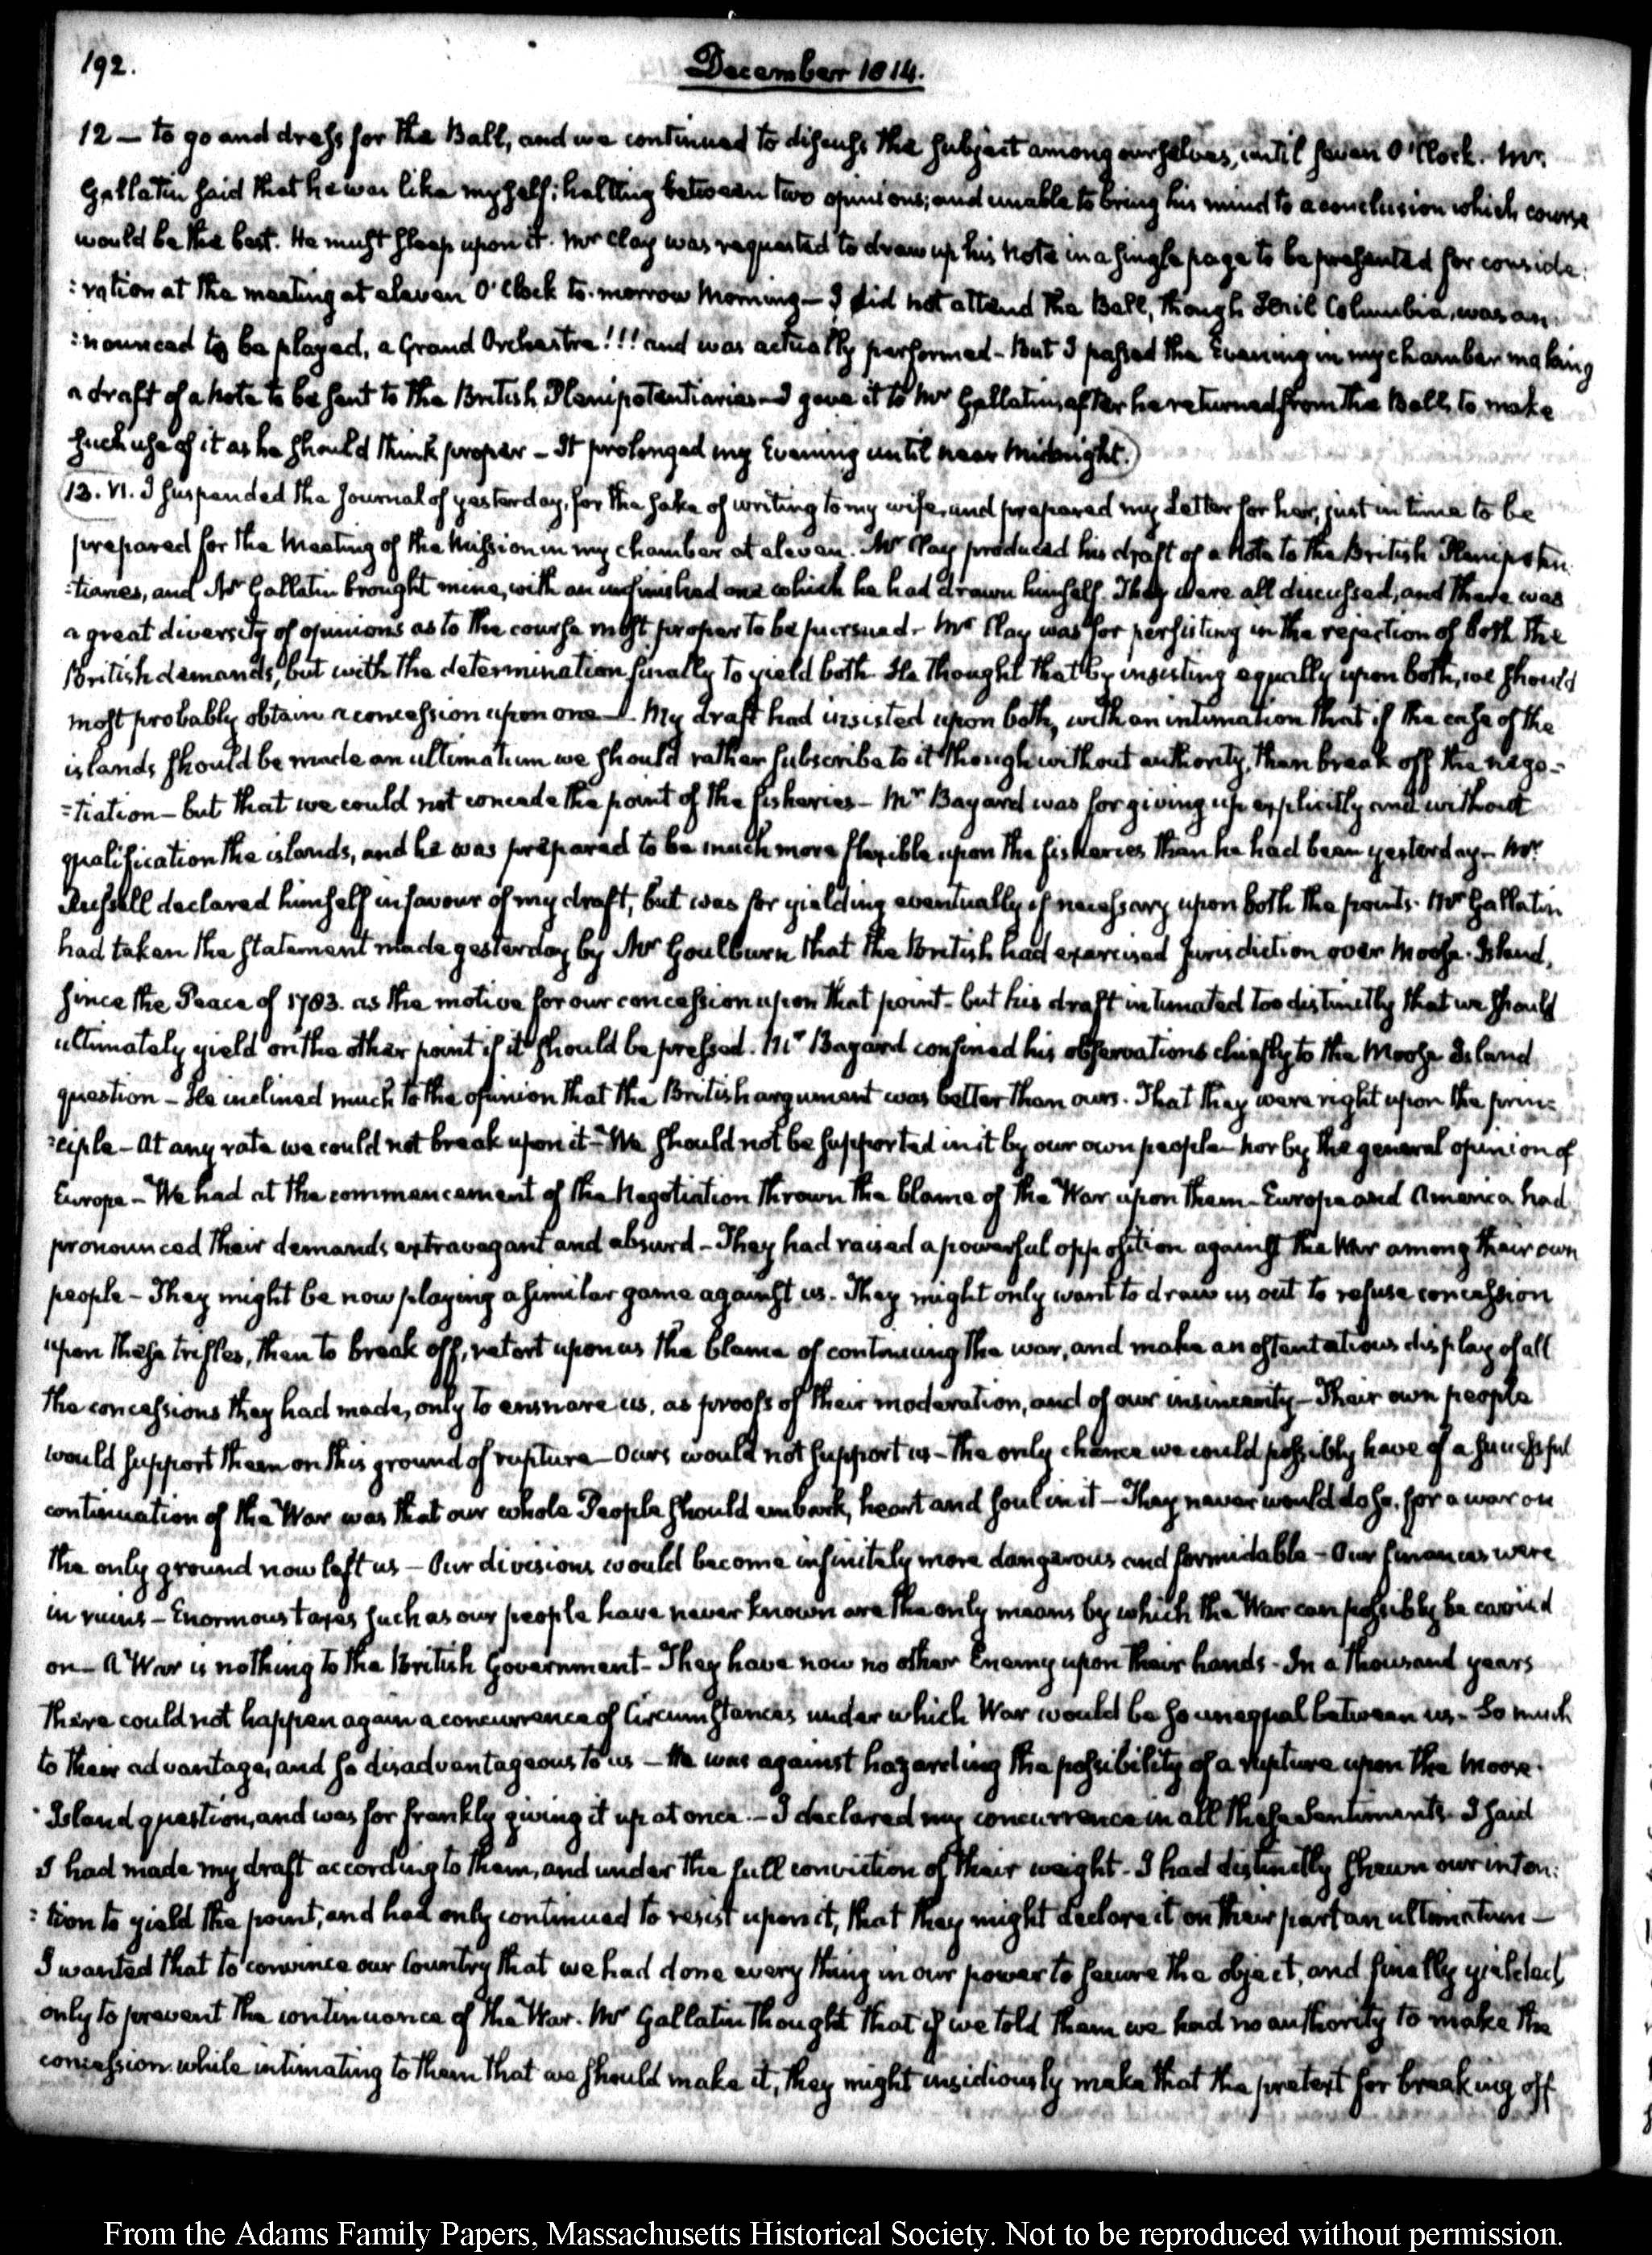 192.
December 1814.
12 — to go and dress for the Ball, and we continued to discuss the subject among ourselves, until seven O'Clock. Mr
Gallatin said that he was like myself; halting between two opinions; and unable to bring his mind to a conclusion which course
would be the best. He must sleep upon it. Mr Clay was requested to draw up his Note in a single page to be presented for conside:
:ration at the meeting at eleven O'Clock to-morrow Morning — I did not attend the Ball, though Heil Columbia, was an
:nounced to be played, a Grand Orchestra!!! and was actually performed — But I passed the Evening in my chamber making
a draft of a Note to be sent to the British Plenipotentiaries — I gave it to Mr Gallatin, after he returned from the Ball, to make
such use of it as he should think proper — It prolonged my Evening until near Midnight.
13. VI. I suspended the Journal of yesterday, for the sake of writing to my wife, and prepared my Letter for her, just in time to be
prepared for the Meeting of the Mission in my chamber at eleven. Mr Clay produced his draft of a Note to the British Plenipoten
:tiaries, and Mr Gallatin brought mine, with an unfinished one which he had drawn himself. They were all discussed, and there was
a great diversity of opinions as to the course most proper to be pursued — Mr Clay was for persisting in the rejection of both the
British demands, but with the determination finally to yield both. He thought that by insisting equally upon both, we should
most probably obtain a concession upon one — My draft had insisted upon both, with an intimation that if the case of the
islands should be made an ultimatum we should rather subscribe to it though without authority, than break off the nego-
=tiation — but that we could not concede the point of the fisheries — Mr Bayard was for giving up explicitly and without
qualification the islands, and he was prepared to be much more flexible upon the fisheries than he had been yesterday — Mr
Russell declared himself in favour of my draft, but was for yielding eventually if necessary upon both the points. Mr Gallatin
had taken the statement made yesterday by Mr Goulburn that the British had exercised jurisdiction over Moose-Island,
since the Peace of 1783. as the motive for our concession upon that point — but his draft intimated too distinctly that we should
ultimately yield on the other point if it should be pressed. Mr Bayard confined his observations chiefly to the Moose Island
question — He inclined much to the opinion that the British argument was better than ours. That they were right upon the prin=
:ciple — At any rate we could not break upon it — We should not be supported in it by our own people — nor by the general opinion of
Europe — We had at the commencement of the Negotiation thrown the blame of the War upon them — Europe and America had
pronounced their demands extravagant and absurd — They had raised a powerful opposition against the War among their own
people — They might be now playing a similar game against us. They might only want to draw us out to refuse concession
upon these trifles, then to break off, retort upon us the blame of continuing the war, and make an ostentatious display of all
the concessions they had made, only to ensnare us, as proofs of their moderation, and of our insincerity — Their own people
would support them on this ground of rupture — Ours would not support us — the only chance we could possibly have of a successful
continuation of the War was that our whole People should embark, heart and soul in it — They never would do so, for a war on
the only ground now left us — Our divisions would become infinitely more dangerous and formidable — Our finances were
in ruins — Enormous taxes such as our people have never known are the only means by which the War can possibly be carried
on — A War is nothing to the British Government — They have now no other Enemy upon their hands — In a thousand years
there could not happen again a concurrence of Circumstances under which War would be so unequal between us — So much
to their advantage, and so disadvantageous to us — He was against hazarding the possibility of a rupture upon the Moose
-Island question, and was for frankly giving it up at once. — I declared my concurrence in all these Sentiments. I said
I had made my draft according to them, and under the full conviction of their weight — I had distinctly shewn our inten:
:tion to yield the point, and had only continued to resist upon it, that they might declare it on their part an ultimatum —
I wanted that to convince our Country that we had done every thing in our power to secure the object, and finally yielded
only to prevent the continuance of the War. Mr Gallatin thought that if we told them we had no authority to make the
concession while intimating to them that we should make it, they might insidiously make that the pretext for breaking off
From the Adams Family Papers, Massachusetts Historical Society. Not to be reproduced without permission.